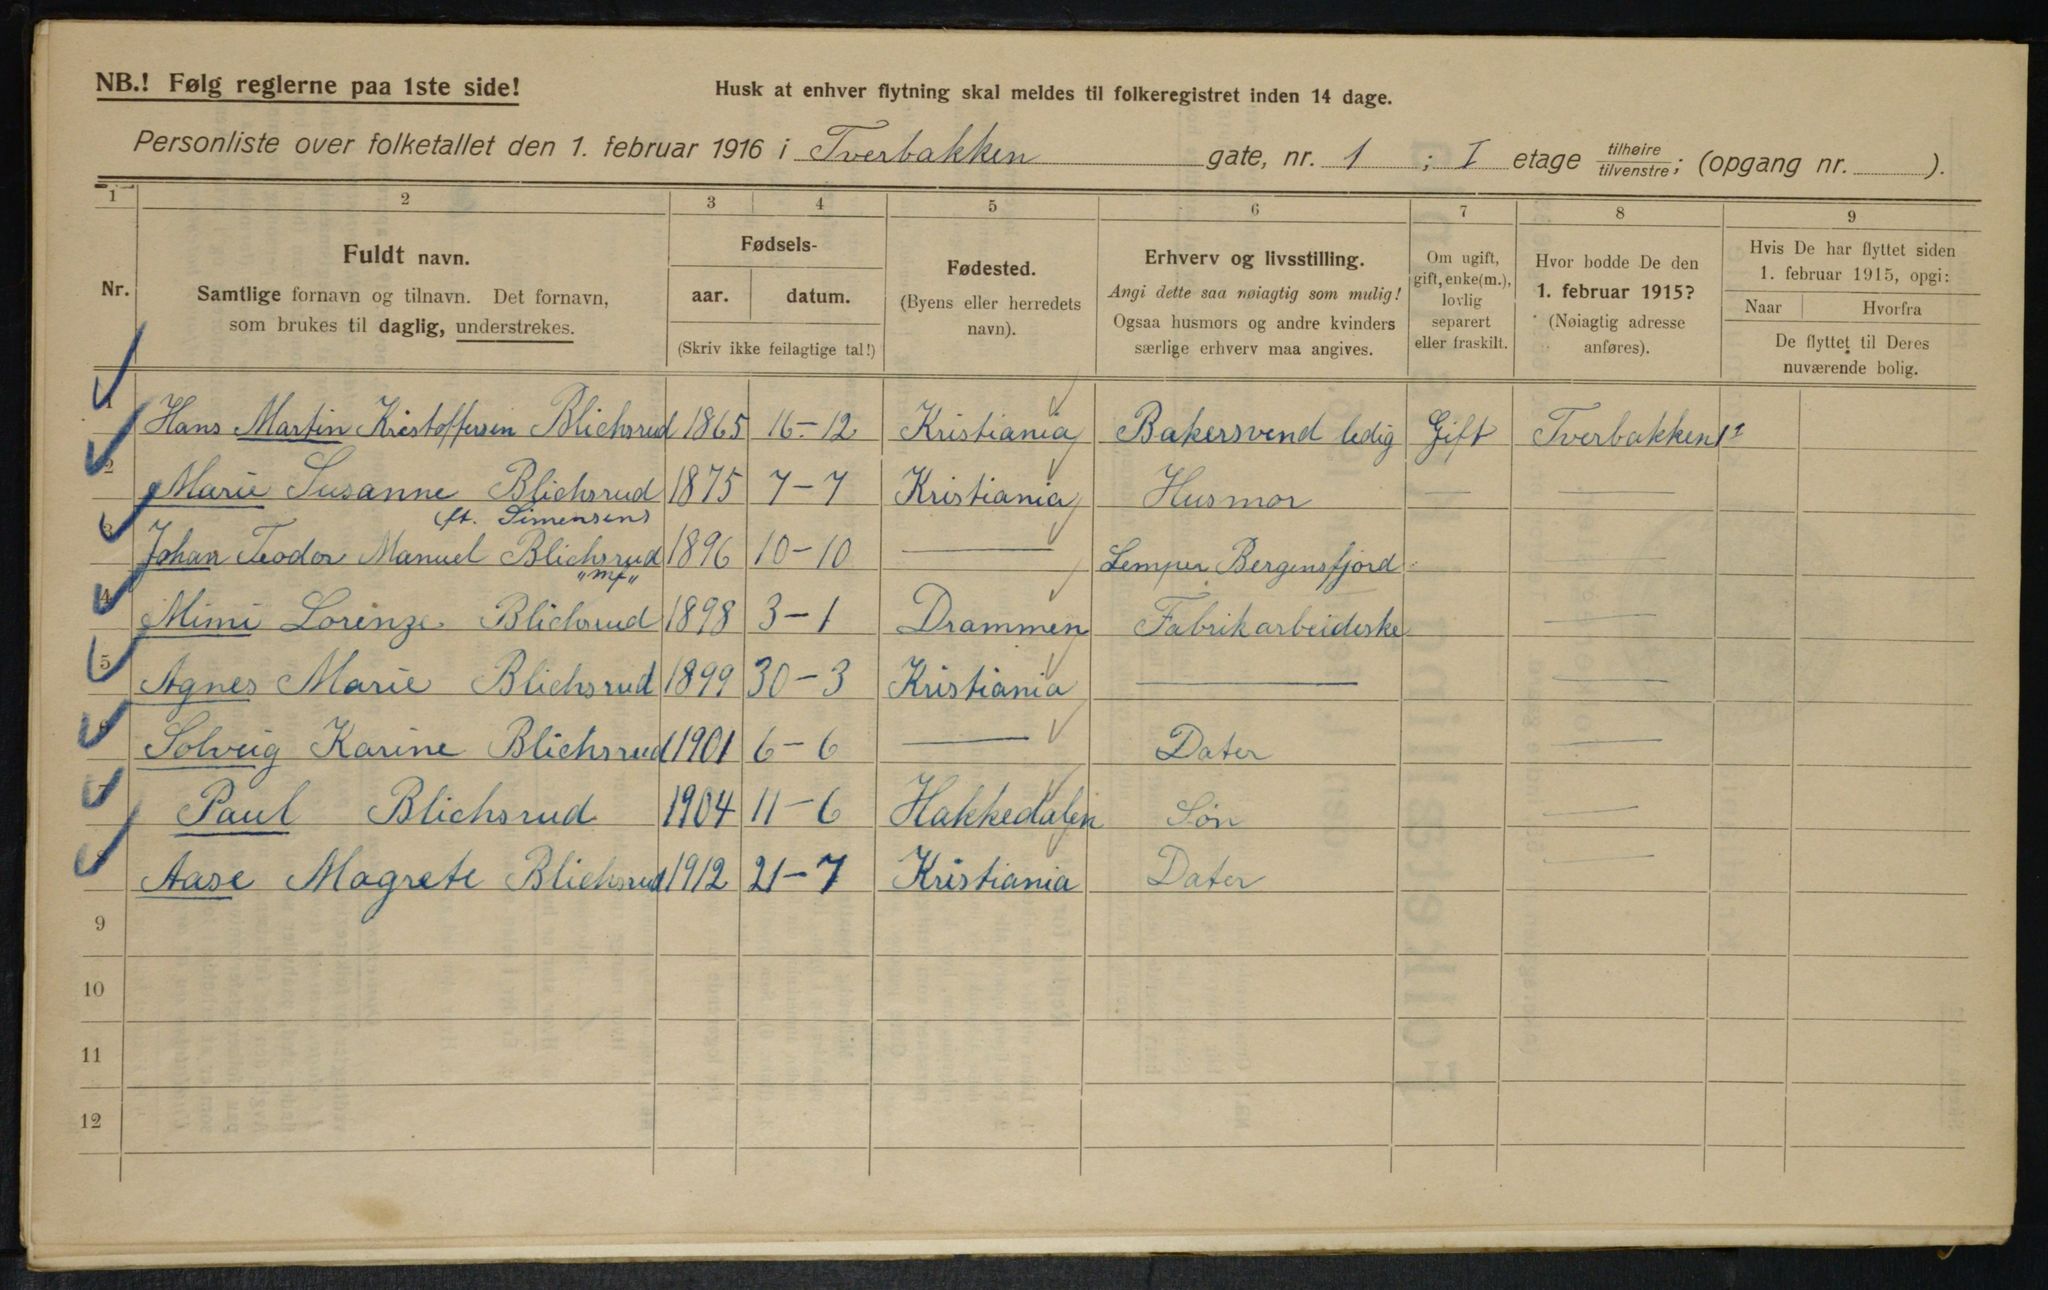 NB.! Følg reglerne paa 1ste side!
Husk at enhver flytning skal meldes til folkeregistret inden 14 dage.
Personliste over folketallet den 1. februar 1916 i Tverbakken gate, nr. 1 ; I etage tilhøire/tilvenstre; (opgang nr. ).
1 2 3 4 5 6 7 8 9
Nr.
Fuldt navn.
Samtlige fornavn og tilnavn. Det fornavn,
som brukes til daglig, understrekes.
Fødsels-
aar. datum.
(Skriv ikke feilagtige tal!)
Fødested.
(Byens eller herredets
navn).
Erhverv og livsstilling.
Angi dette saa nøiagtig som mulig!
Ogsaa husmors og andre kvinders
særlige erhverv maa angives.
Om ugift,
gift, enke(m.),
lovlig
separert
eller fraskilt.
Hvor bodde De den
1. februar 1915?
(Nøiagtig adresse
anføres).
Hvis De har flyttet siden
1. februar 1915, opgi:
Naar Hvorfra
De flyttet til Deres
nuværende bolig.
1 Hans Martin Kristoffersen Blichsrud 1865 16-12 Kristiania Bakersvend ledig Gift Tverbakken 1
2 Marie Susanne Blichsrud 1875 7-7 Kristiania Husmor — —
ft. Simensen
3 Johan Teodor Manuel Blichsrud 1896 10-10 — Lemper Bergensfjord —
"mf"
4 Mimi Lorenze Blichsrud 1898 3-1 Drammen Fabrikarbeiderske —
5 Agnes Marie Blichsrud 1899 30-3 Kristiania — —
6 Solveig Karine Blichsrud 1901 6-6 — Dater —
7 Paul Blichsrud 1904 11-6 Hakkedalen Søn —
8 Aase Magrete Blichsrud 1912 21-7 Kristiania Dater —
9
10
11
12